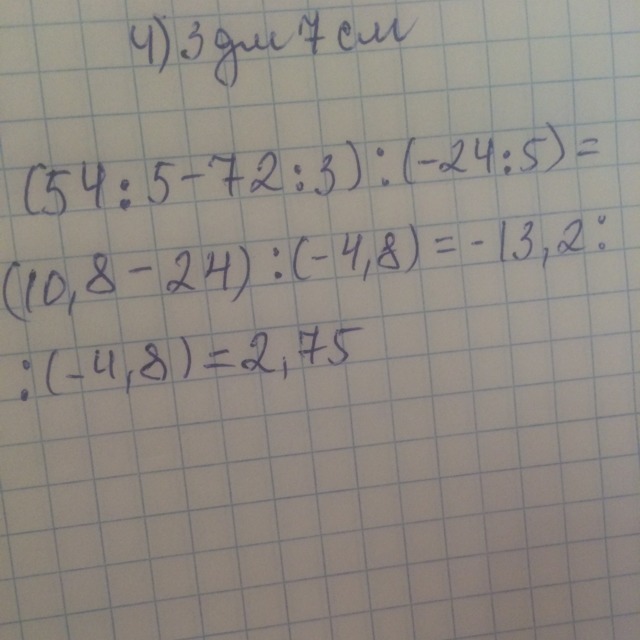 4) 3 дм 7 см
(54:5-72:3):(-24:5)=
(10,8-24):(-4,8)=-13,2:
:(-4,8)=2,75